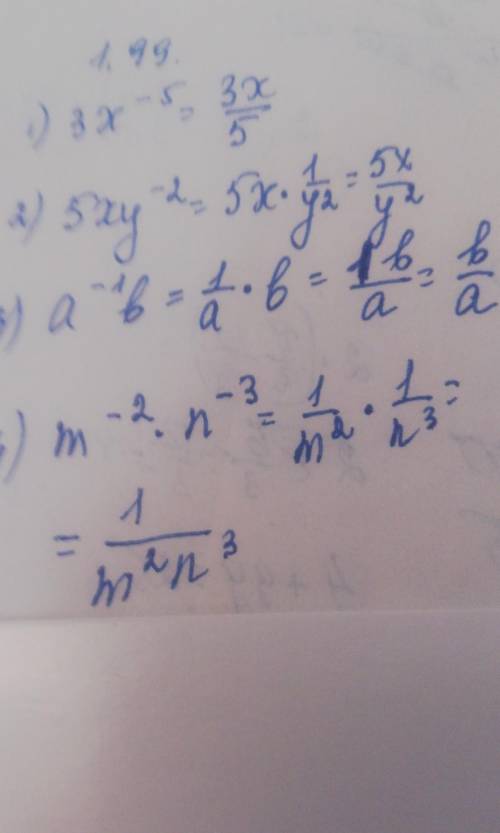 1.99.
1) 3x⁻⁵ = 3x/5
2) 5xy⁻² = 5x · 1/y² = 5x/y²
) a⁻¹b = 1/a · b = 1b/a = b/a
) m⁻² · n⁻³ = 1/m² · 1/n³ =
= 1/m²n³